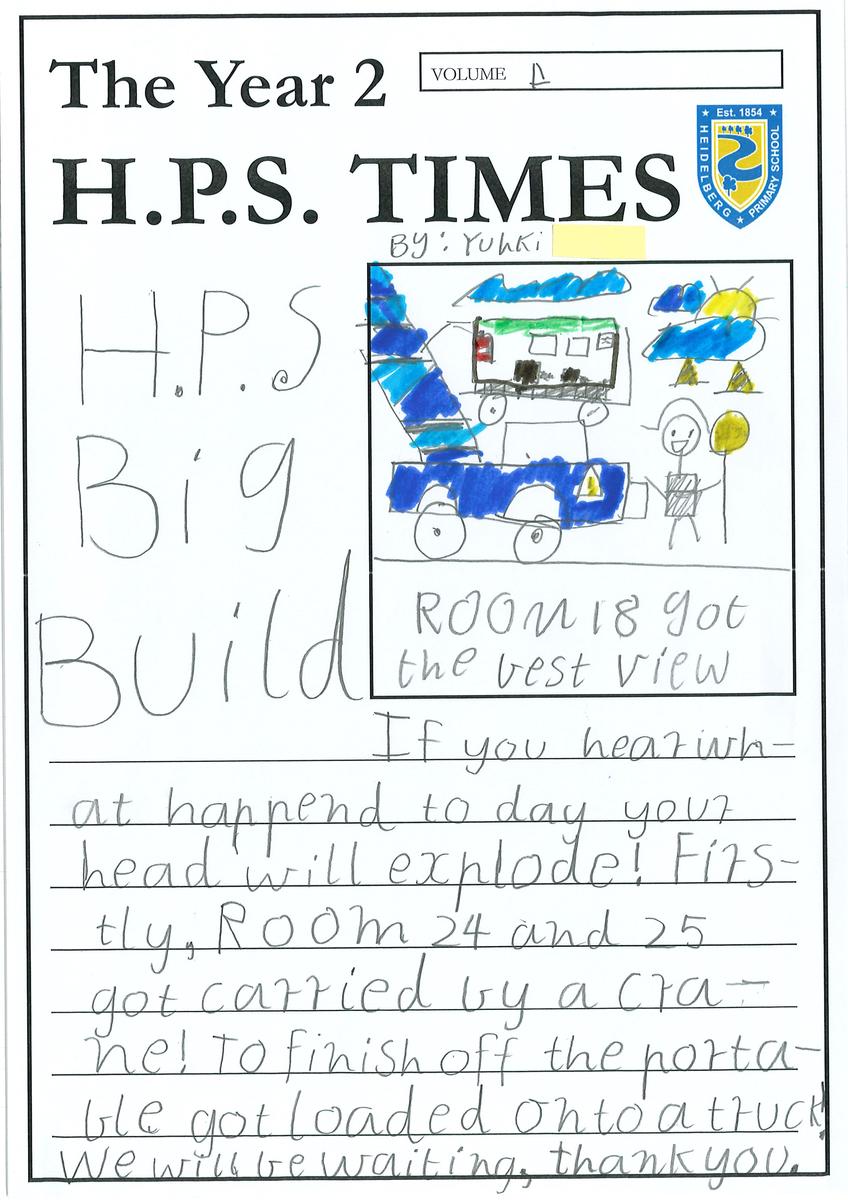 The Year 2
VOLUME
H.P.S. TIMES
★ Est. 1854 ★
HEIDELBERG ★ PRIMARY SCHOOL
BY: Yuhki
H.P.S
Big
Build
ROOM 18 got
the best view
If you hear wh-
at happend to day your
head will explode! Firs-
tly, ROOM 24 and 25
got carried by a cra-
ne! To finish off the porta-
ble got loaded onto a truck!
We will be waiting, thank you.